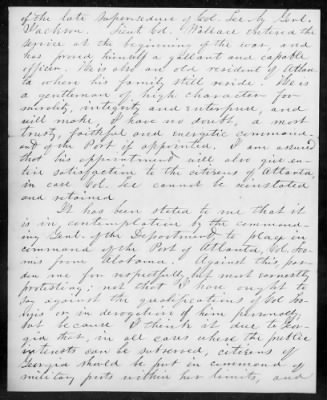 of the late supersedure of Col. Lee by Genl.
Jackson. Lieut Col. Wallace entered the
service at the beginning of the war, and
has proved himself a gallant and capable
officer. He is also an old resident of Atlan-
ta where his family still reside. He is
a gentleman of high character for
sobriety, integrity and enterprise, and
will make, I have no doubt, a most
trusty, faithful and energetic command-
ant of the Post if appointed. I am assured
that his appointment will also give en-
tire satisfaction to the citizens of Atlanta,
in case Col. Lee cannot be reinstated
and retained.
It has been stated to me that it
is in contemplation by the command-
ing Genl. of the Department to place in
command of the Post of Atlanta, Col.
from Alabama. Against this, par-
don me for respectfully, but most earnestly
protesting; not that I have ought to
say against the qualifications of Col
or in derogation of him personally,
but because I think it due to Geor-
gia that, in all cases where the public
interests can be subserved, citizens of
Georgia should be put in command of
military posts within her limits, and